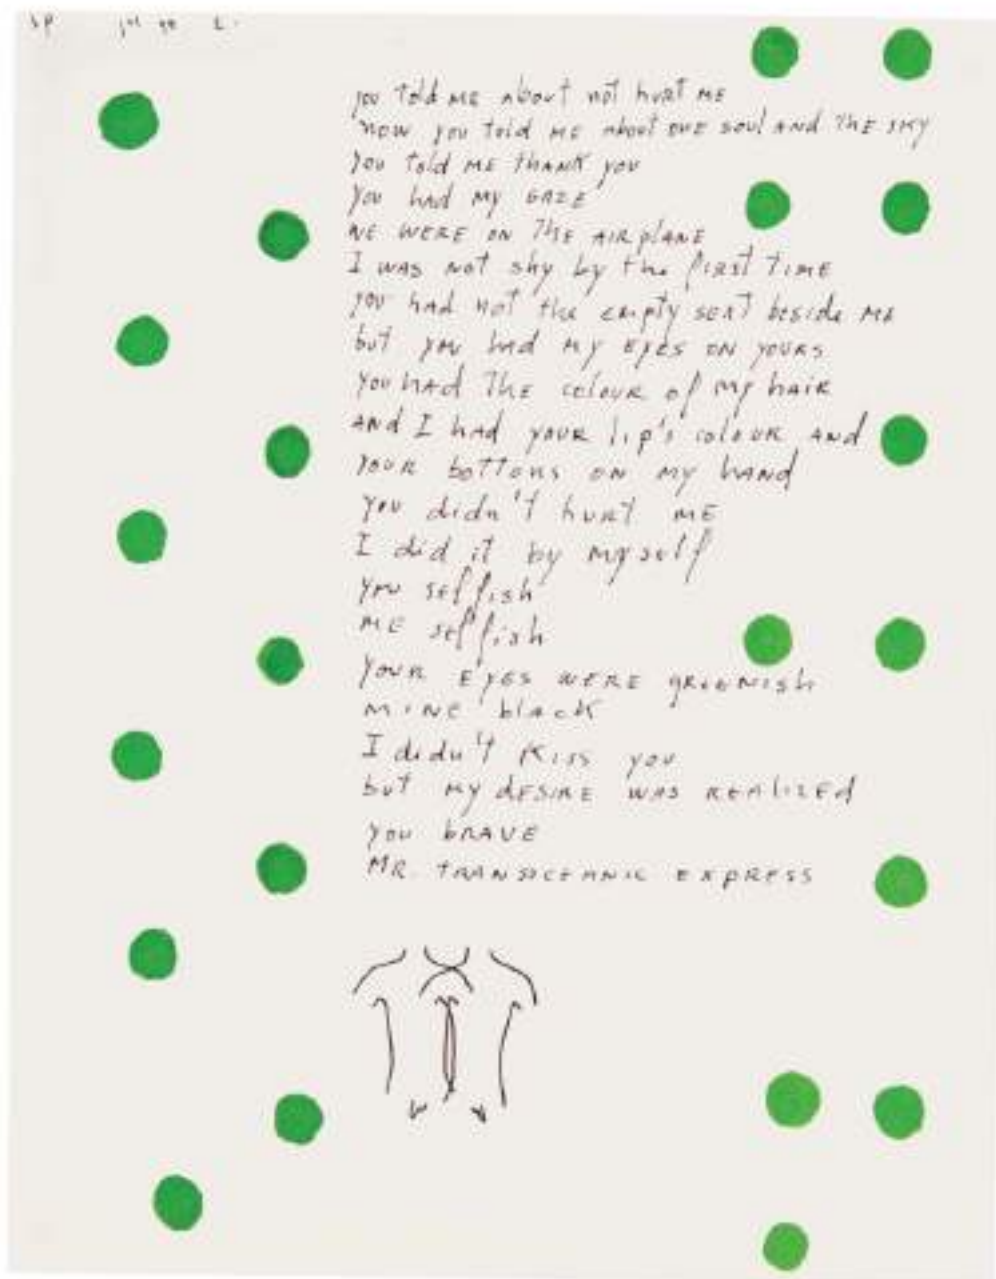 SP
you told me about not hurt me
now you told me about one soul and the sky
you told me thank you
you had my gaze
WE WERE ON THE AIRPLANE
I was not shy by the first time
you had not the empty seat beside me
but you had my eyes on yours
you had the colour of my hair
and I had your lip's colour and
your bottons on my hand
you didn't hurt me
I did it by myself
you selfish
me selfish
your eyes were greenish
mine black
I didn't kiss you
but my desire was realized
you brave
MR. TRANSOCEANIC EXPRESS